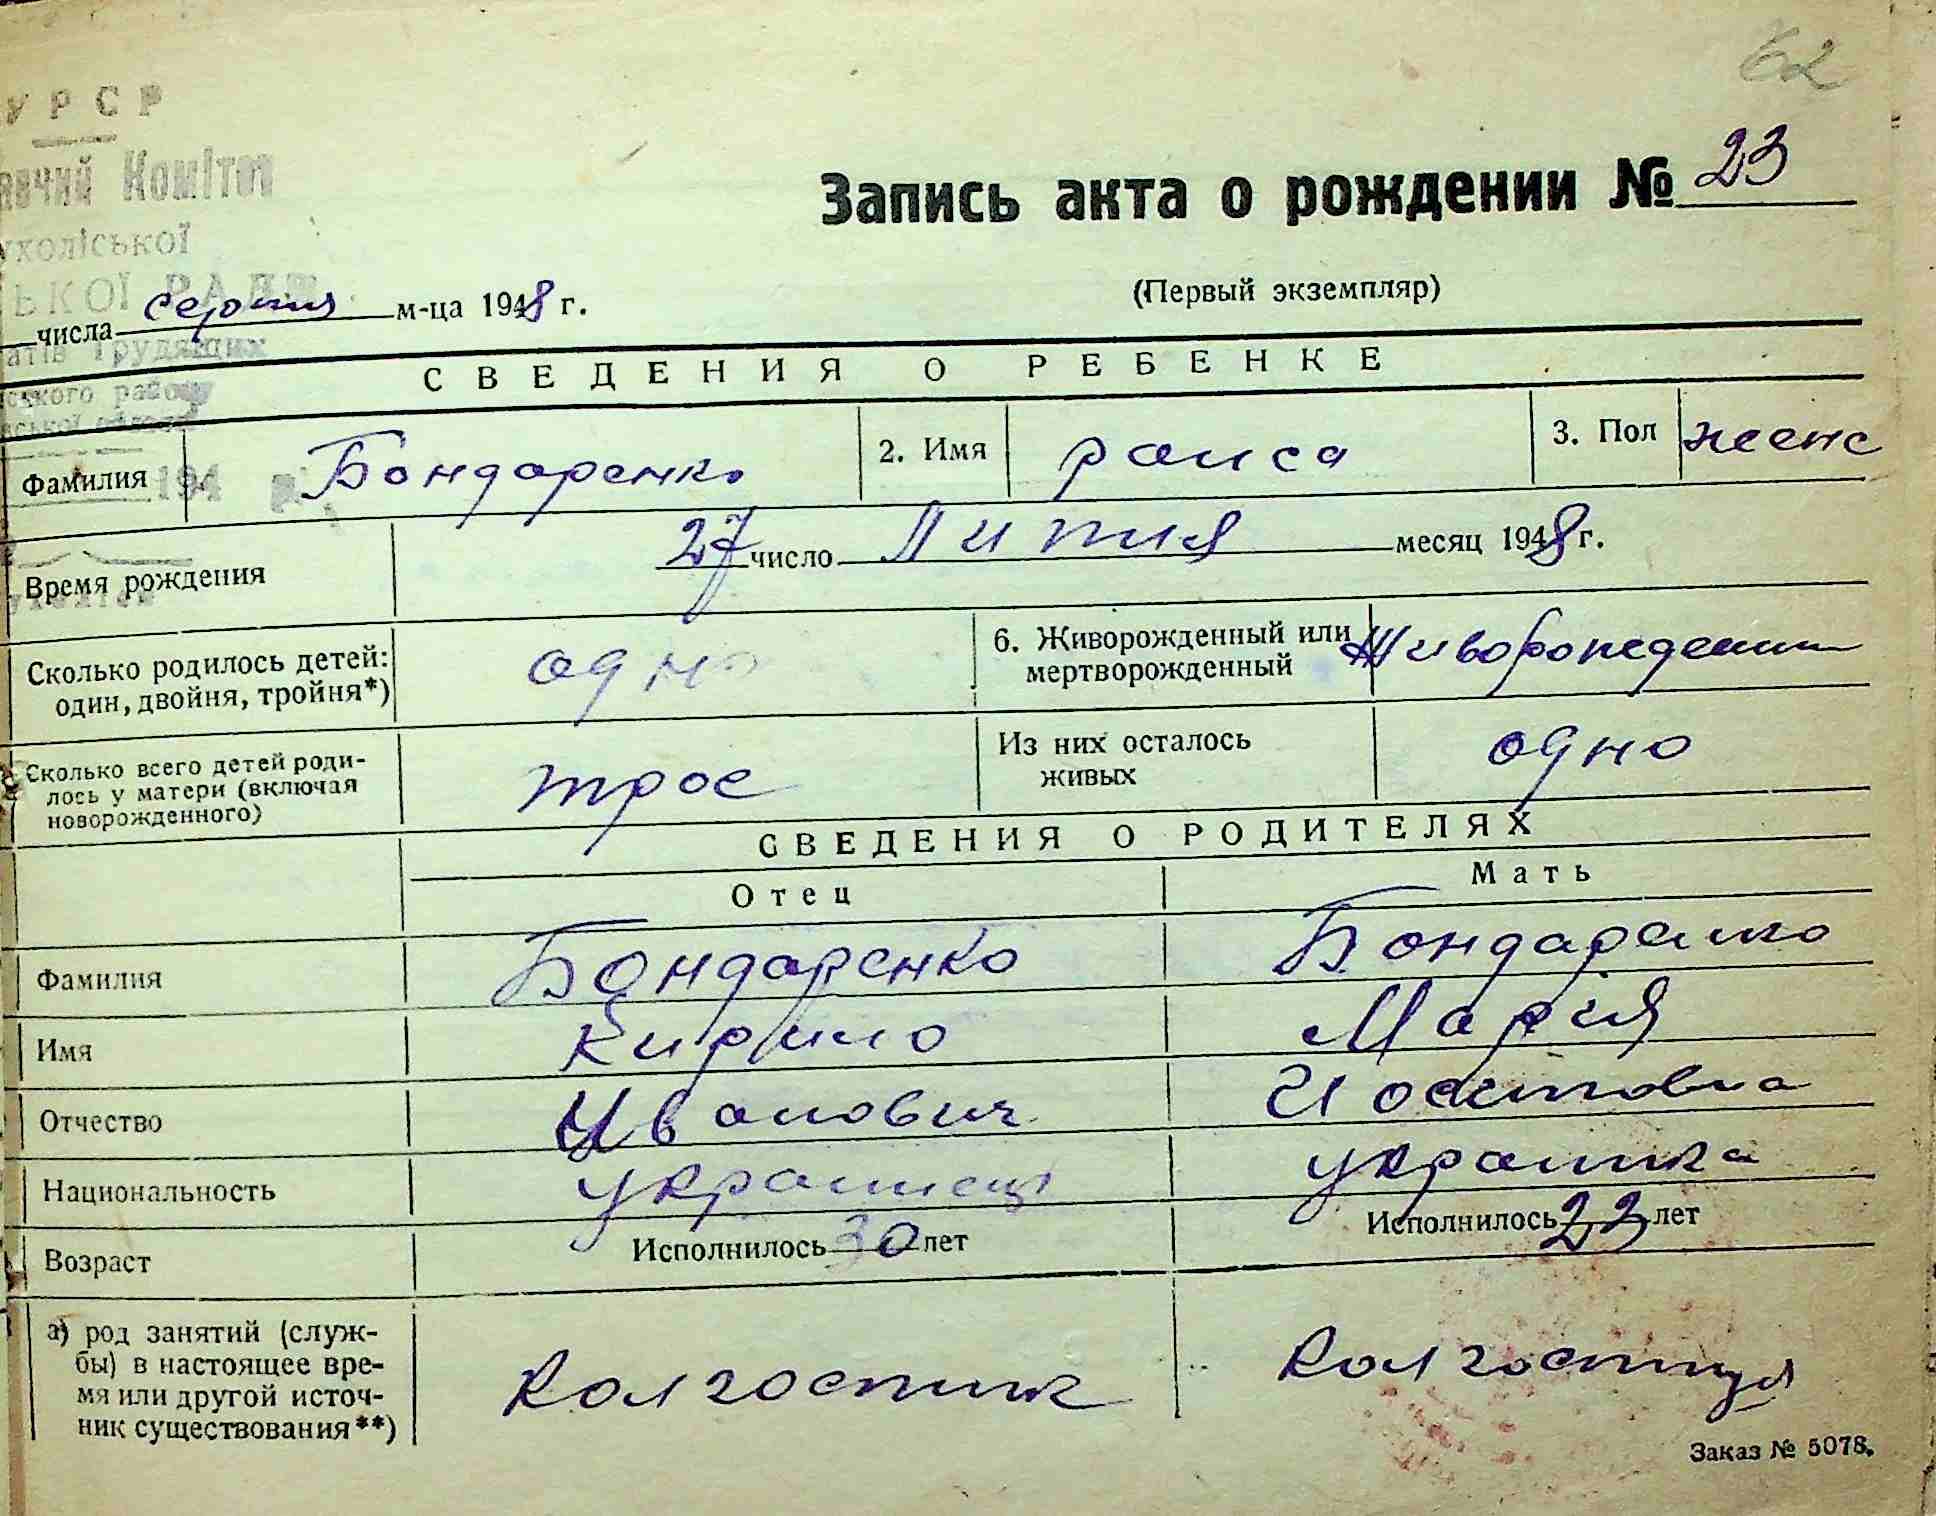 62
УРСР
Комітет
Запись акта о рождении № 23
ухоліської
(Первый экземпляр)
ЬКОЇ РАДИ
числа серпня м-ца 1948 г.
атів Трудящих
СВЕДЕНИЯ О РЕБЕНКЕ
ського району
Фамилия Бондаренко 2. Имя раиса 3. Пол женс
194 р.
Время рождения 27 число Липня месяц 1948 г.
Сколько родилось детей: один, двойня, тройня*) одно
6. Живорожденный или мертворожденный Живорождении
Сколько всего детей роди-
лось у матери (включая
новорожденного) трое
Из них осталось
живых одно
СВЕДЕНИЯ О РОДИТЕЛЯХ
Отец Мать
Фамилия Бондаренко Бондаренко
Имя Кирило Марія
Отчество Иванович Иосиповна
Национальность украинець украинка
Возраст Исполнилось 30 лет Исполнилось 23 лет
а) род занятий (служ-
бы) в настоящее вре-
мя или другой источ-
ник существования**) Колгоспник Колгоспниця
Заказ № 5078.